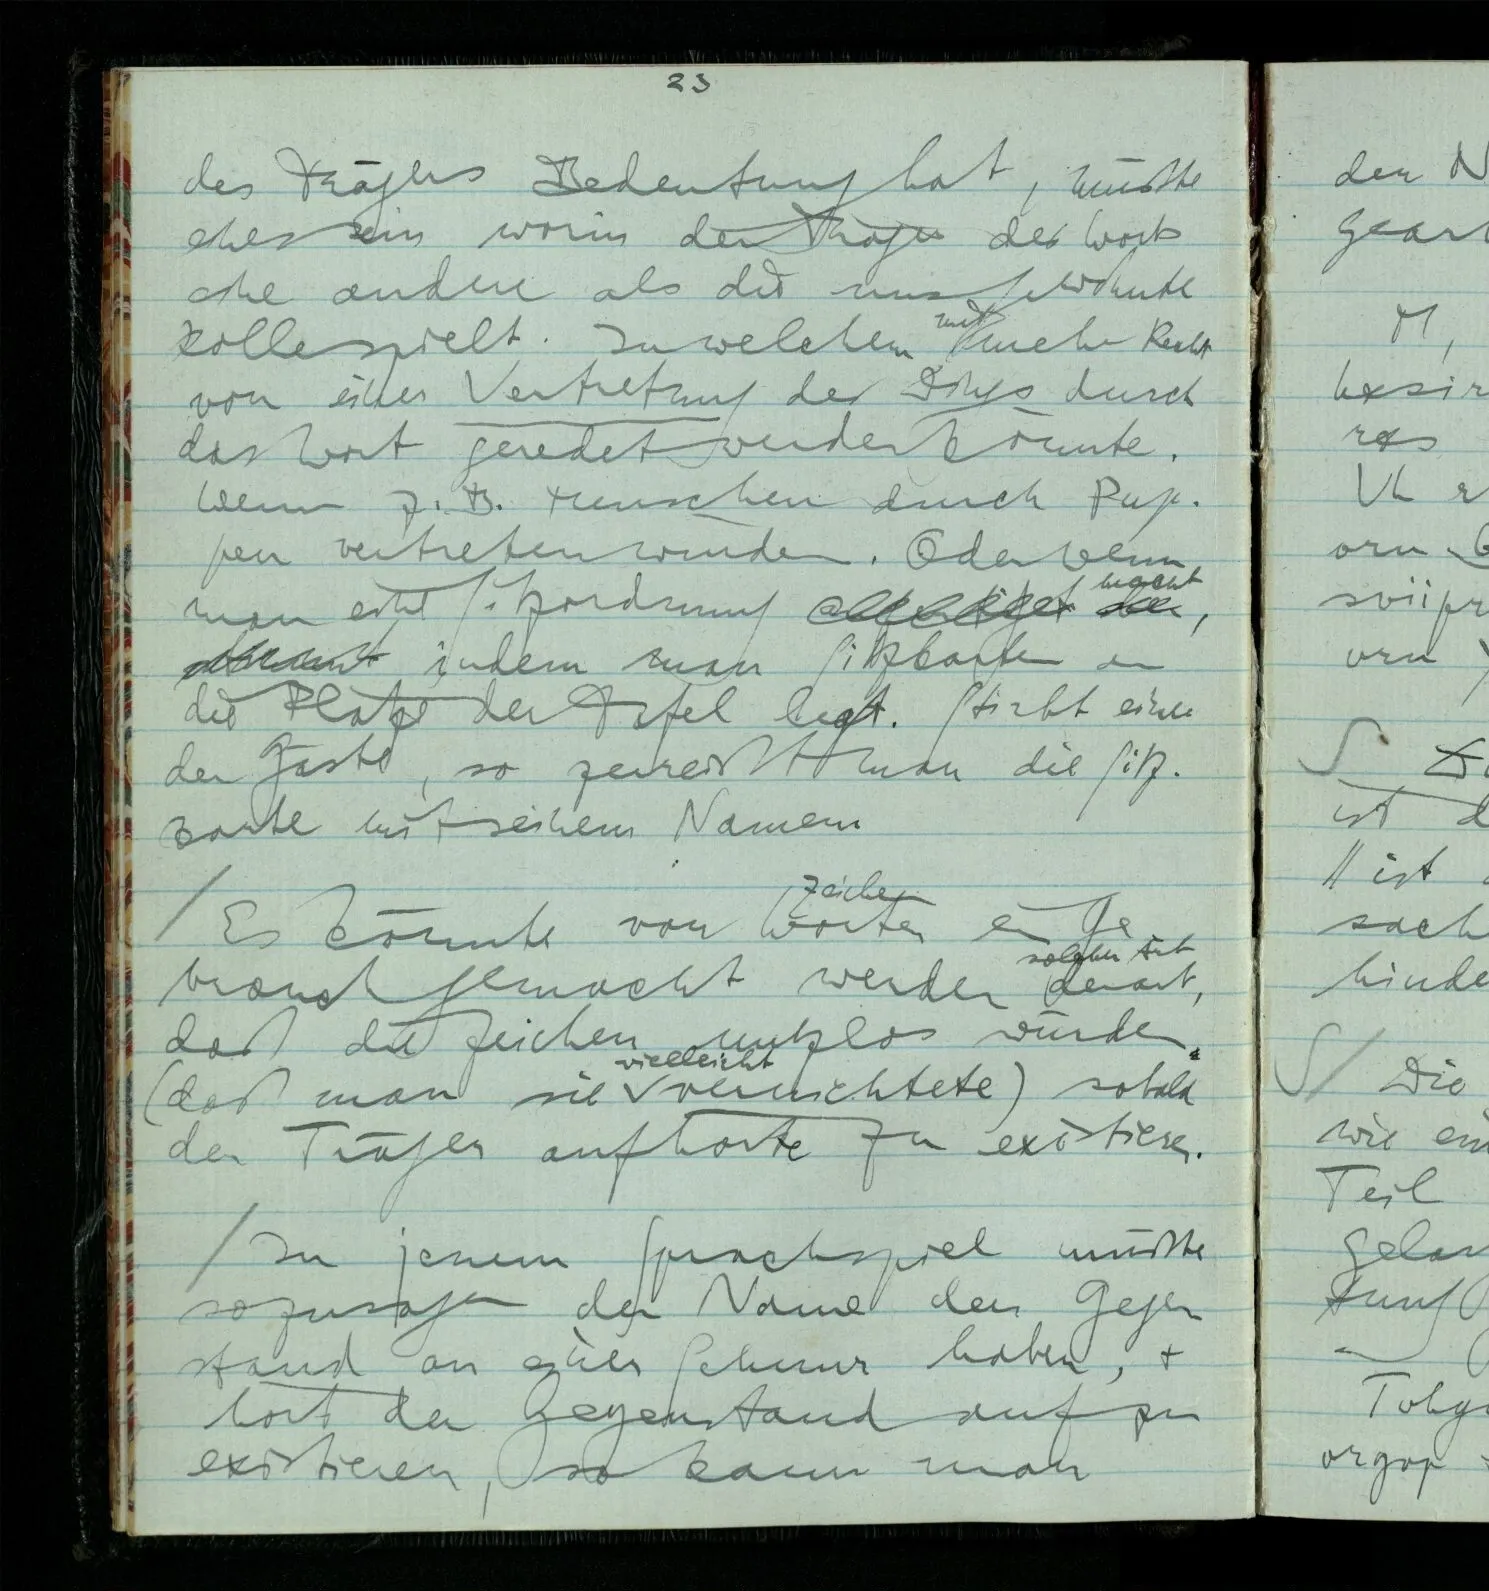 23
des Trägers Bedeutung hat, müßte
eines sein worin der Träger des Worts
eine andere als die uns gewohnte
Rolle spielt. In welchem mit mehr Recht
von einer Vertretung des Dings durch
das Wort geredet werden könnte.
Wenn z.B. Menschen durch Pup-
pen vertreten würden. Oder wenn
man eine Sitzordnung macht,
indem man Sitzkarten an
die Plätze der Tafel legt. Stirbt einer
der Gäste, so zerreißt man die Sitz-
karte mit seinem Namen
/ Es könnte von Worten Zeichen ein Ge
brauch gemacht werden derart, solcher Art
daß die Zeichen nutzlos würden
(daß man sie vielleicht vernichtete) sobald
der Träger aufhörte zu existieren.
/ In jenem Sprachspiel müßte
sozusagen der Name den Gegen
stand an einer Schnur haben, +
hört der Gegenstand auf zu
existieren, so kann man
den
M,
ras
orn
orn
∫
ist d
ist
sach
hinde
∫/ Die
wie ein
Teil